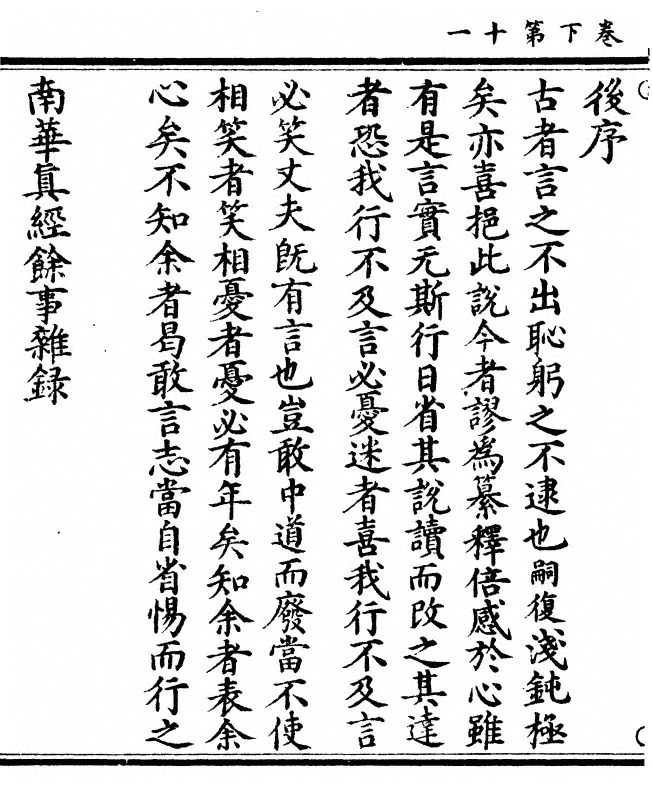 卷下第十一
後序
古者言之不出恥躬之不逮也嗣復淺鈍極
矣亦喜挹此說今者謬為纂釋倍感於心雖
有是言實无斯行日省其說讀而改之其達
者恐我行不及言必憂迷者喜我行不及言
必笑丈夫旣有言也豈敢中道而廢當不使
相笑者笑相憂者憂必有年矣知余者表余
心矣不知余者曷敢言志當自省惕而行之
南華眞經餘事雜録